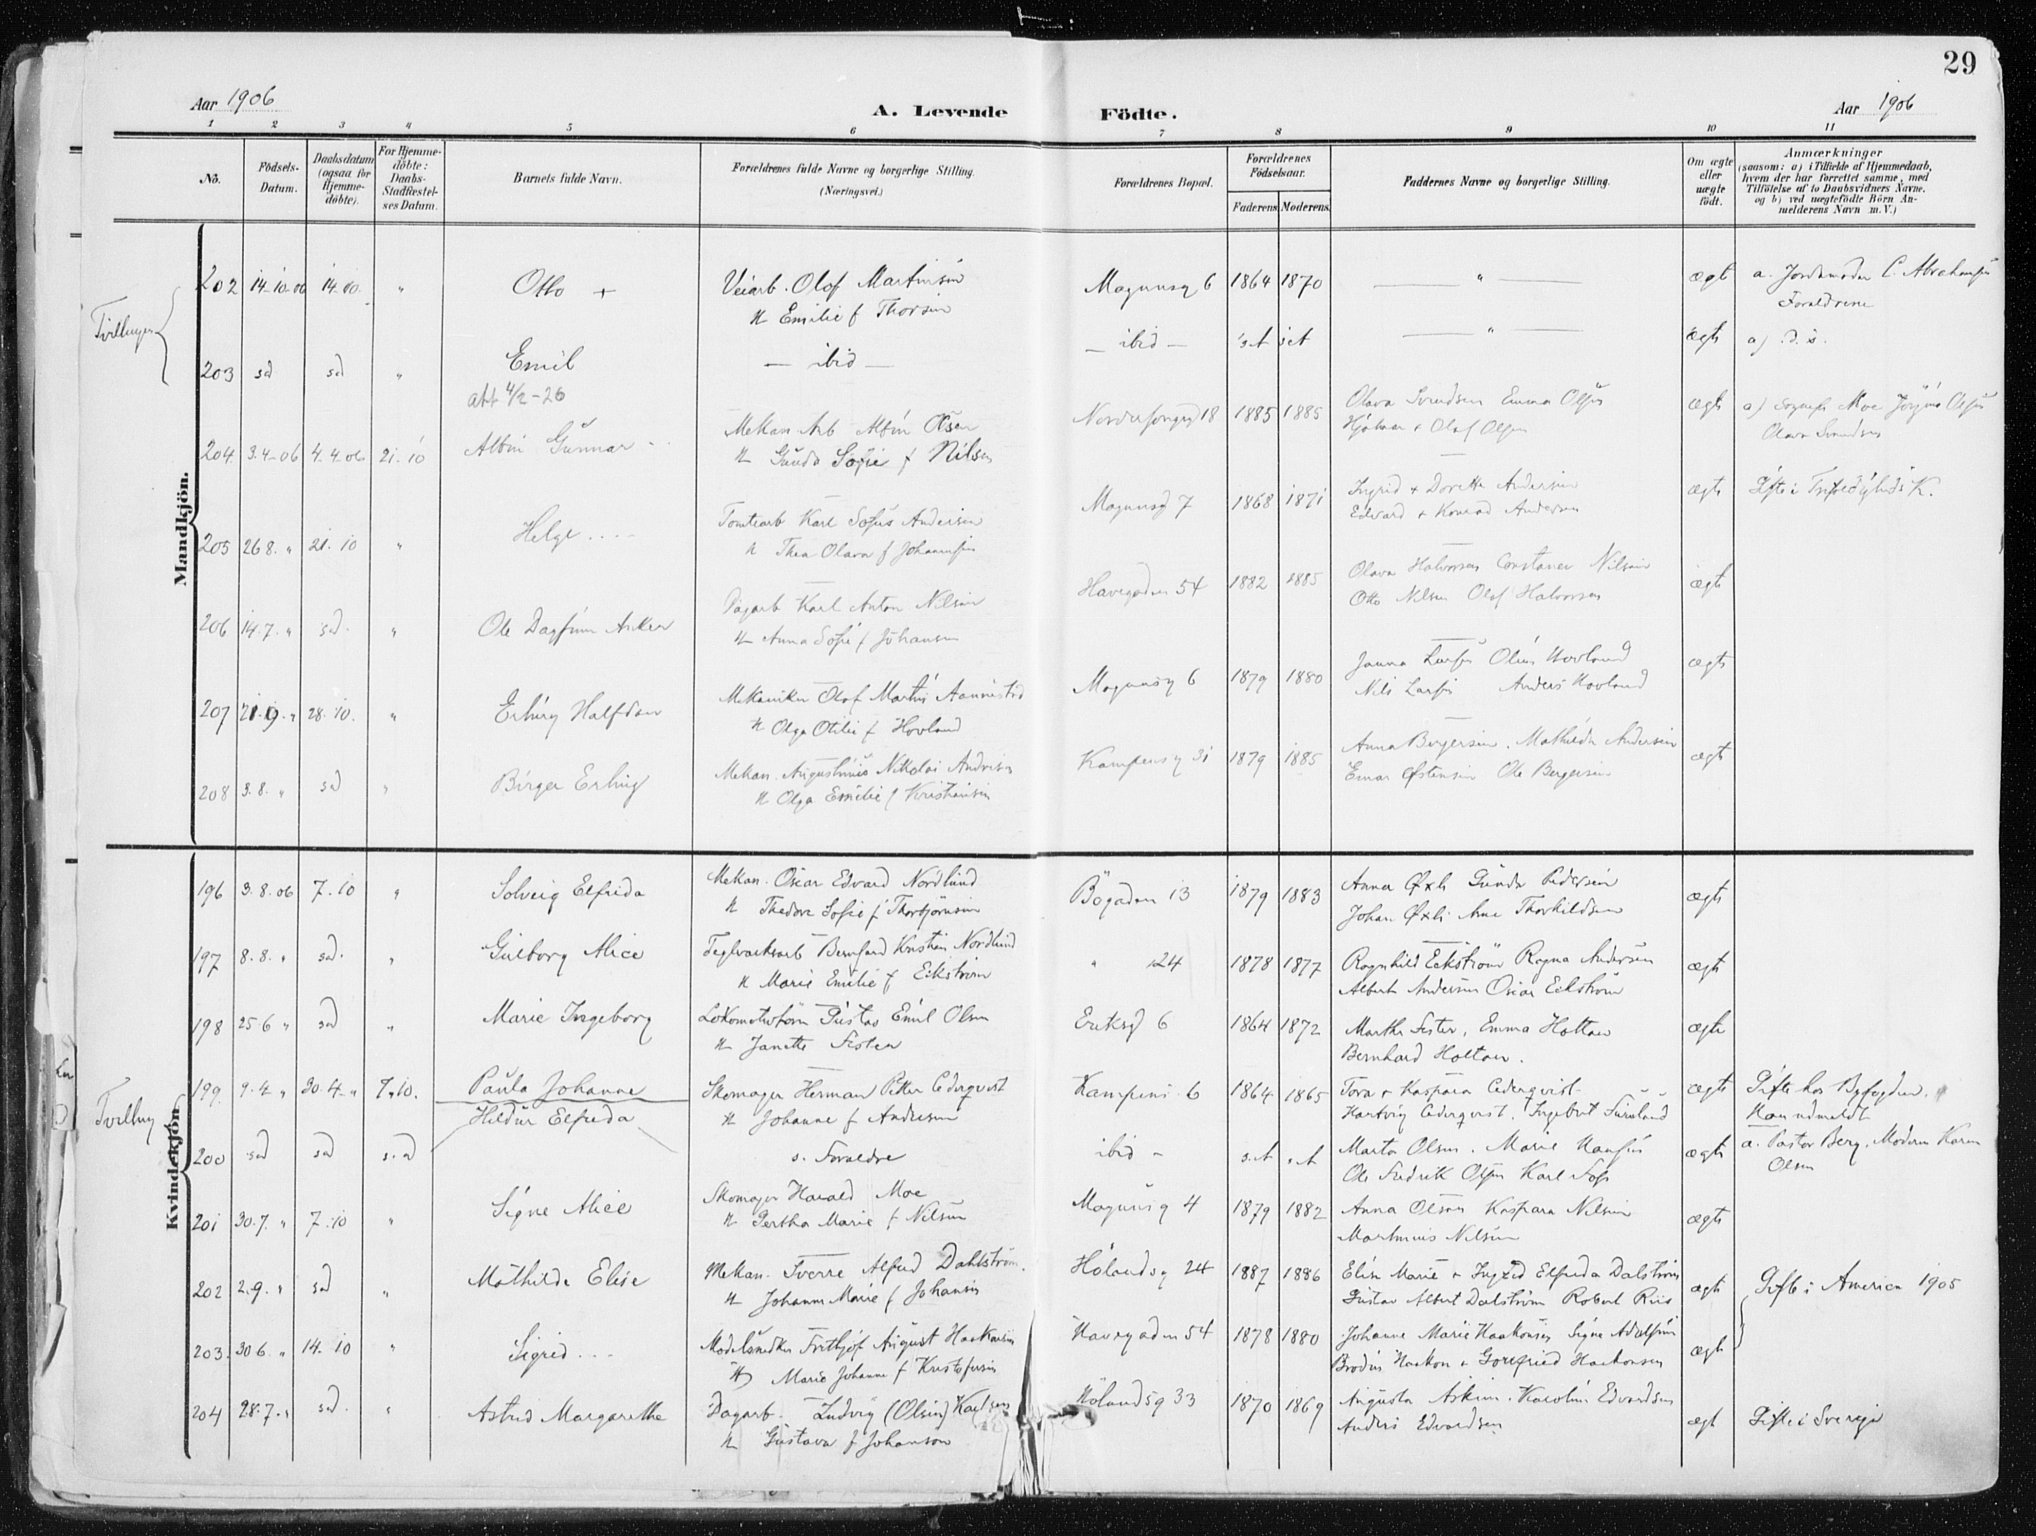 29
Aar 1906
A. Levende Födte.
Aar 1906
1 2 3 4 5 6 7 8 9 10 11
No.
Födsels-Datum.
Daabsdatum (ogsaa for Hjemme-döbte).
For Hjemme-döbte: Daabs-Stadfæstel-ses Datum.
Barnets fulde Navn.
Forældrenes fulde Navne og borgerlige Stilling. (Næringsvei.)
Forældrenes Bopæl.
Forældrenes Födselsaar.
Faderens Moderens
Faddernes Navne og borgerlige Stilling.
Om ægte eller uægte födt.
Anmærkninger
(saasom: a) i Tilfælde af Hjemmedaab,
hvem der har forrettet samme, med
Tilföielse af to Daabsvidners Navne.
og b) ved uægtefödte Börn An-
melderens Navn m. V.)
Mandkjön.
202 14-10-06 14.10. " Otto + Veiarb. Olof Martinsen Magnusg 6 1864 1870 " ægt a. Jordemoder C. Abrahamsen
H Emilie f Thorsen Forældrene
203 sd sd " Emil - ibid - - ibid - s.A s.A " ægt a) d. s.
att 4/2-26
204 3.4-06 4.4.06 21.10 Albin Gunnar Mekan Arb Albin Olsen 18 1885 1885 Olava Svendsen Emma Olsen ægt a) Moe Olsen
H Gunda Sofie f Nilsen Hjalmar + Olaf Olsen Olava Svendsen
205 26 8. " 21.10 " Helge .... Tomtearb Karl Sofus Andersen Magnusg 7 1868 1871 Ingrid + Dorthea Andersen ægt
H Thea Olava f Johannesen Edvard + Konrad Andersen
206 14.7. " sd. " Ole Dagfinn Anker Dagarb Karl Anton Nilsen Havegaden 54 1882 1885 Olava Halvorsen Constance Nilsen ægt
H Anna Sofie f Johansen Otto Nilsen Olaf Halvorsen
207 21.9. " 28.10. " Erling Halfdan Mekaniker Olof Martin Aannestad Magnusg 6 1879 1880 Janna Larsen Hovland ægt
H Olga Otilie f Hovland Nils Larsen Anders Hovland
208 3.8. " sd " Birger Erling Mekan. Augustinus Nikolai Andersen Kampensg 31 1879 1885 Anna Bergersen. Mathilde Andersen ægt
H Olga Emilie f Kristiansen Einar Østensen Ole Bergersen
Kvindekjön
196 3.8.06 7.10 " Solveig Elfrida Mekan. Oscar Edvard Nordlund Bögaden 13 1879 1883 Anna Gunda Pedersen ægt
H Thedora Sofie f Thorbjörnsen Johan Arne Thorkildsen
197 8.8. " sd. " Guiborg Alice Teglverksarb Bernhard Kristian Nordlund " 24 1878 1877 Ragnhild Eckström Ragna Andersen ægt
H Marie Emilie f Eckström Albert Andersen Oscar Eckström
198 25.6 " sd " Marie Ingeborg Lokomotivförer Gustav Emil Olsen Eriksg 6 1864 1872 Marthe Fister, Emma Holtan ægte
H Janette Fister Bernhard Holtan.
Tvilling
199. 9.4 " 30.4 " 7.10. Paula Johanne Skomager Herman Peter Cederqvist Kampens. 6 1864 1865 Tora + Kaspara Cederqvist. ægt Gifte hos Byfogden.
Hildur Elfrida H Johanne f Andersen Hartvig Cederqvist. Ingebret Kau udmeldt
200 sd sd s.d s. Foreldre ibid - s.A s.A Marta Olsen. Marie Hansen ægt a. Pastor Berg, Moderen Karen
Ole Fredrik Olsen Karl Foss Olsen
201 30.7. " 7.10 " Signe Alice Skomager Harald Moe Magnusg 4 1879 1882 Anna Olsen Kaspara Nilsen ægt
H Bertha Marie f Nilsen Martinius Nilsen
202 2.9. " sd " Mathilde Elise Mekan. Sverre Alfred Dahlström. Hölandsg 24 1887 1886 Elin Marie + Ingrid Elfrida Dalström ægt Gifte i America 1905
H Johanne Marie f Johansen Gustav Albert Dalström Robert Riis
203. 30 6. " 14.10 " Sigrid ... Modelsnedker Fritjof August Haakonsen Havegaden 54 1878 1880 Johanne Marie Haakonsen Signe Adolfsen ægt
H Marie Johanne f Kristofersen Brødr. Haakon + Gotfried Haakonsen
204 28.7. " sd. " Astrid Margarethe Dagarb. Ludvig (Olsen) Karlsen Hölandsg 33 1870 1869 Augusta Askim. Karoline Edvardsen ægt Gifte i Sverige
H Gustava f Johanson Anders Edvardsen